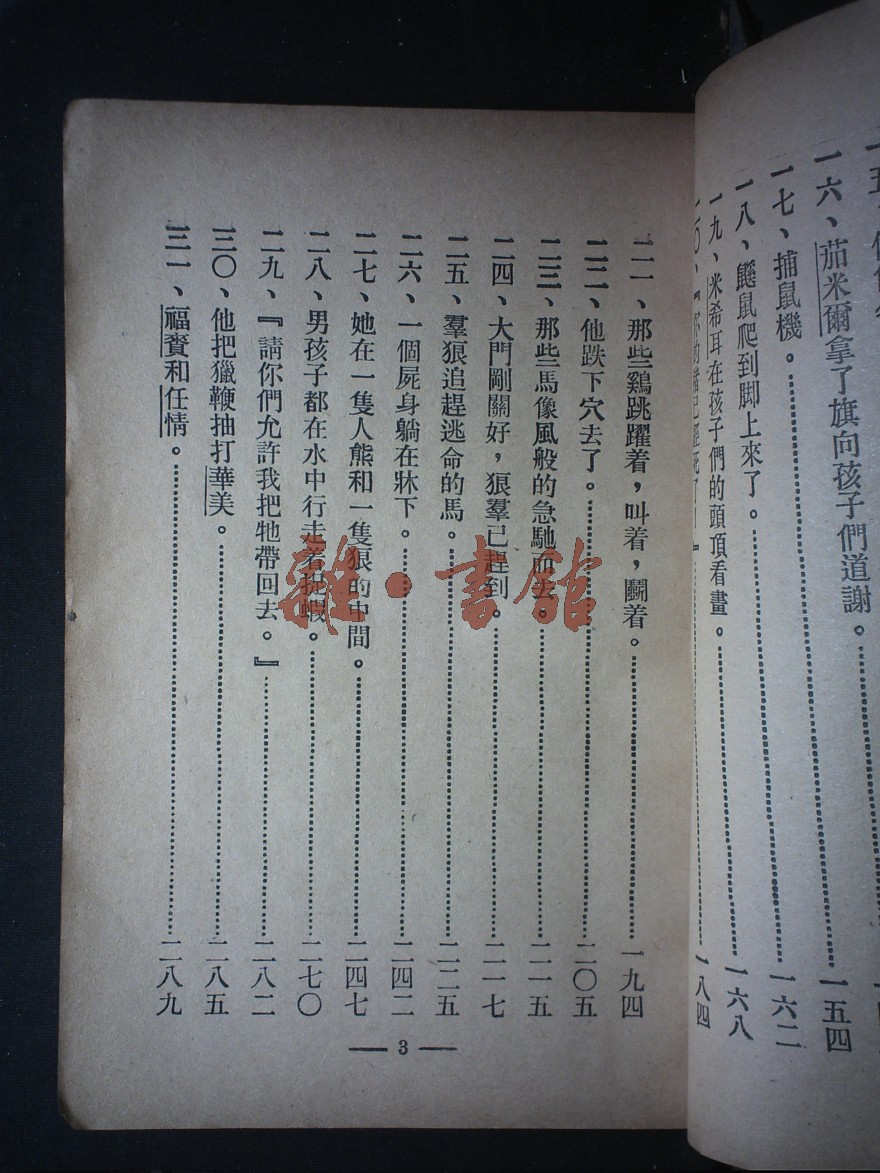 一六、茄米爾拿了旗向孩子們道謝。……一五四
一七、捕鼠機。……一六二
一八、鼴鼠爬到脚上來了。……一六八
一九、米希耳在孩子們的頭頂看畫。
二〇、『你的 已經死了！』……一八四
二一、那些鷄跳躍着，叫着，鬭着。……一九四
二二、他跌下穴去了。……二〇五
二三、那些馬像風般的急馳而去。……二一五
二四、大門剛關好，狠羣已趕到。……二一七
二五、羣狠追趕逃命的馬。……二二五
二六、一個屍身躺在牀下。……二四二
二七、她在一隻人熊和一隻狠的中間。……二四七
二八、男孩子都在水中行走着捉蝦。……二七〇
二九、『請你們允許我把牠帶回去。』……二八二
三〇、他把獵鞭抽打華美。……二八五
三一、福賚和任情。……二八九
— 3 —
雜·書館